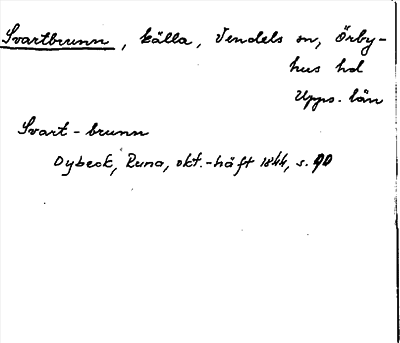 Svartbrunn, källa, Vendels sn, Örby-
hus hd
Upps. län
Svart-brunn
Dybeck, Runa, okt.-häft 1844, s. 90